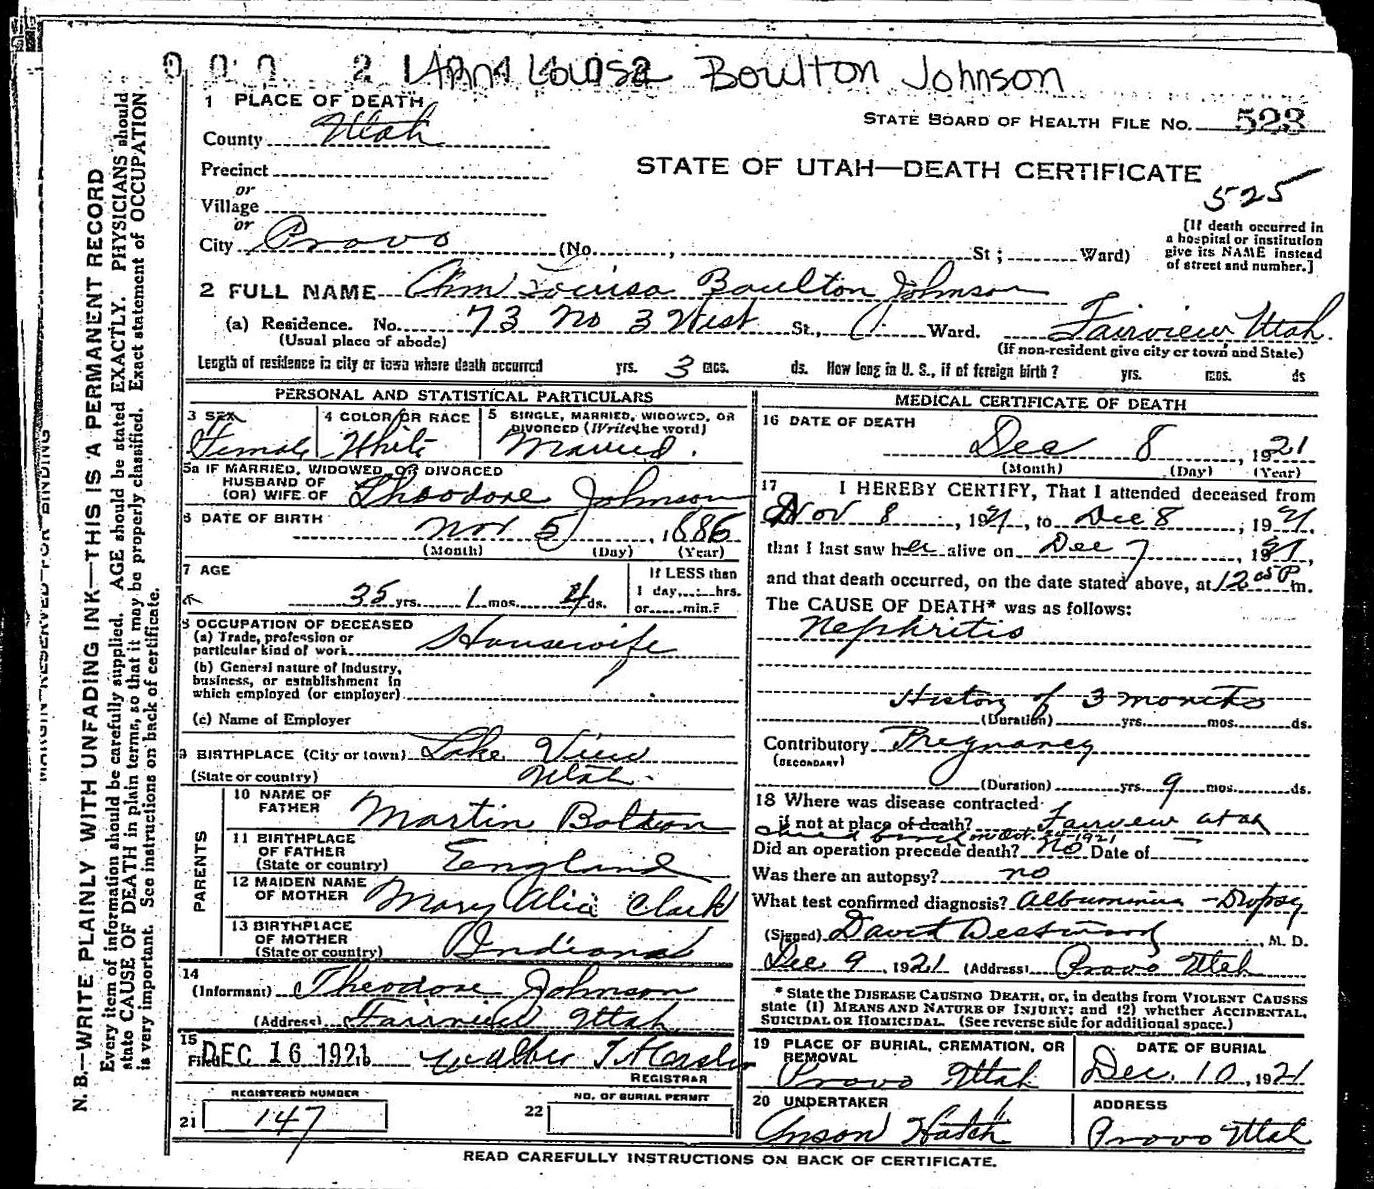 Anna Louisa Boulton Johnson
1 PLACE OF DEATH
County Utah
STATE BOARD OF HEALTH FILE NO. 523
Precinct
STATE OF UTAH—DEATH CERTIFICATE
525
or
Village
or
City Provo (No. , St; Ward)
[If death occurred in a hospital or institution give its NAME instead of street and number.]
2 FULL NAME Ann Louisa Boulton Johnson
(a) Residence. No. 73 No 3 West St., Ward. Fairview Utah.
(Usual place of abode) (If non-resident give city or town and State)
Length of residence in city or town where death occurred yrs. 3 mos. ds. How long in U. S., if of foreign birth? yrs. mos. ds
PERSONAL AND STATISTICAL PARTICULARS
3 SEX
Female
4 COLOR OR RACE
White
5 SINGLE, MARRIED, WIDOWED, OR DIVORCED (Write the word)
Married.
5a IF MARRIED, WIDOWED, OR DIVORCED
HUSBAND OF
(OR) WIFE OF Theodore Johnson
6 DATE OF BIRTH Nov 5, 1886
(Month) (Day) (Year)
7 AGE
35 yrs. 1 mos. 4 ds.
If LESS than
1 day, hrs.
or min.?
8 OCCUPATION OF DECEASED
(a) Trade, profession or
particular kind of work Housewife
(b) General nature of industry,
business, or establishment in
which employed (or employer)
(c) Name of Employer
9 BIRTHPLACE (City or town) Lake View
(State or country) Utah.
PARENTS
10 NAME OF
FATHER Martin Bolton
11 BIRTHPLACE
OF FATHER
(State or country) England
12 MAIDEN NAME
OF MOTHER Mary Alice Clark
13 BIRTHPLACE
OF MOTHER
(State or country) Indiana
14
(Informant) Theodore Johnson
(Address) Fairview Utah
15
Filed DEC 16 1921
REGISTRAR
REGISTERED NUMBER
21 147
NO. OF BURIAL PERMIT
22
MEDICAL CERTIFICATE OF DEATH
16 DATE OF DEATH
Dec 8, 1921
(Month) (Day) (Year)
17 I HEREBY CERTIFY, That I attended deceased from
Nov 8, 1921, to Dec 8, 1921.
that I last saw her alive on Dec 7, 1921,
and that death occurred, on the date stated above, at 12 05 P m.
The CAUSE OF DEATH* was as follows:
Nephritis
History of 3 months
(Duration) yrs. mos. ds.
Contributory Pregnancy
(SECONDARY)
(Duration) yrs. 9 mos. ds.
18 Where was disease contracted
if not at place of death? Fairview Utah
on Oct. 1921
Did an operation precede death? No Date of
Was there an autopsy? no
What test confirmed diagnosis? Albuminuria - Dropsy
(Signed) David Westwood, M. D.
Dec 9, 1921 (Address) Provo Utah
* State the DISEASE CAUSING DEATH, or, in deaths from VIOLENT CAUSES
state (1) MEANS AND NATURE OF INJURY; and (2) whether ACCIDENTAL,
SUICIDAL OR HOMICIDAL. (See reverse side for additional space.)
19 PLACE OF BURIAL, CREMATION, OR
REMOVAL
Provo Utah
DATE OF BURIAL
Dec. 10, 1921
20 UNDERTAKER
Anson Hatch
ADDRESS
Provo Utah
READ CAREFULLY INSTRUCTIONS ON BACK OF CERTIFICATE.
MARGIN RESERVED FOR BINDING
N. B.—WRITE PLAINLY WITH UNFADING INK—THIS IS A PERMANENT RECORD
Every item of information should be carefully supplied. AGE should be stated EXACTLY. PHYSICIANS should
state CAUSE OF DEATH in plain terms, so that it may be properly classified. Exact statement of OCCUPATION
is very important. See instructions on back of certificate.